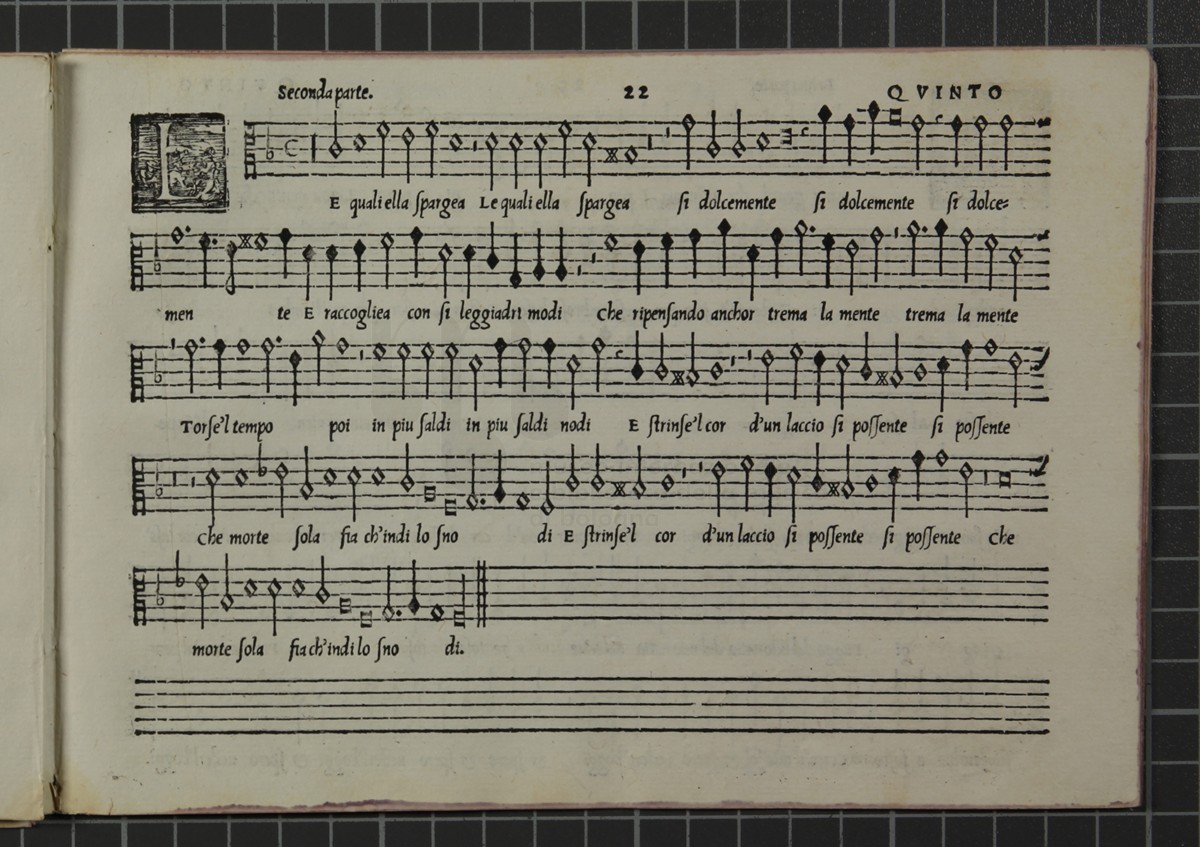 Seconda parte. 22 QVINTO
LE quali ella ſpargea Le quali ella ſpargea ſi dolcemente ſi dolcemente ſi dolce=
men te E raccogliea con ſi leggiadri modi Che ripenſando anchor trema la mente trema la mente
Torſe'l tempo poi in piu ſaldi in piu ſaldi nodi E ſtrinſe'l cor d'un laccio ſi poſſente ſi poſſente
Che morte ſola fia ch'indi lo ſno di E ſtrinſe'l cor d'un laccio ſi poſſente ſi poſſente Che
morte ſola fia ch'indi lo ſno di.